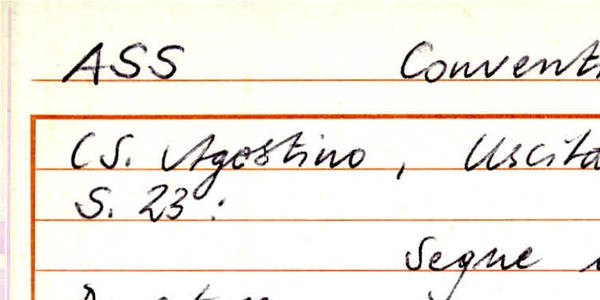 ASS Convent
(S. Agostino, Uscita
S. 23:
Segue